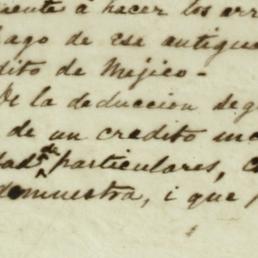 mente á hacer los arr
pago de ese antiguo
dito de Mejico-
De la deduccion segu
de un credito inc
dad de particulares, c
demuestra, i que p